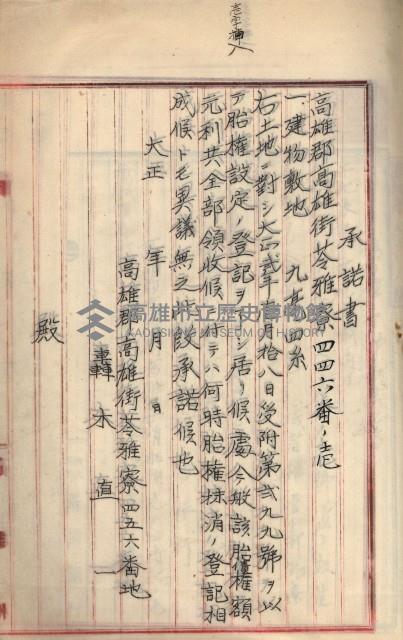 壱字挿入
承諾書
高雄郡高雄街苓雅寮四四六番ノ壱
一、建物敷地 九厘四糸
右土地ニ対シ大正弐年 月拾八日受附第弐九九號ヲ以
テ胎権設定ノ登記ヲ シ居リ候處今般該胎権額
元利共全部領收候ニ付テハ何時胎権抹消ノ登記相
成候トモ異議無之此段承諾候也
大正 年 月 日
高雄郡高雄街苓雅寮四五六番地
轟木直一
殿
高雄市立歷史博物館
KAOHSIUNG MUSEUM OF HISTORY